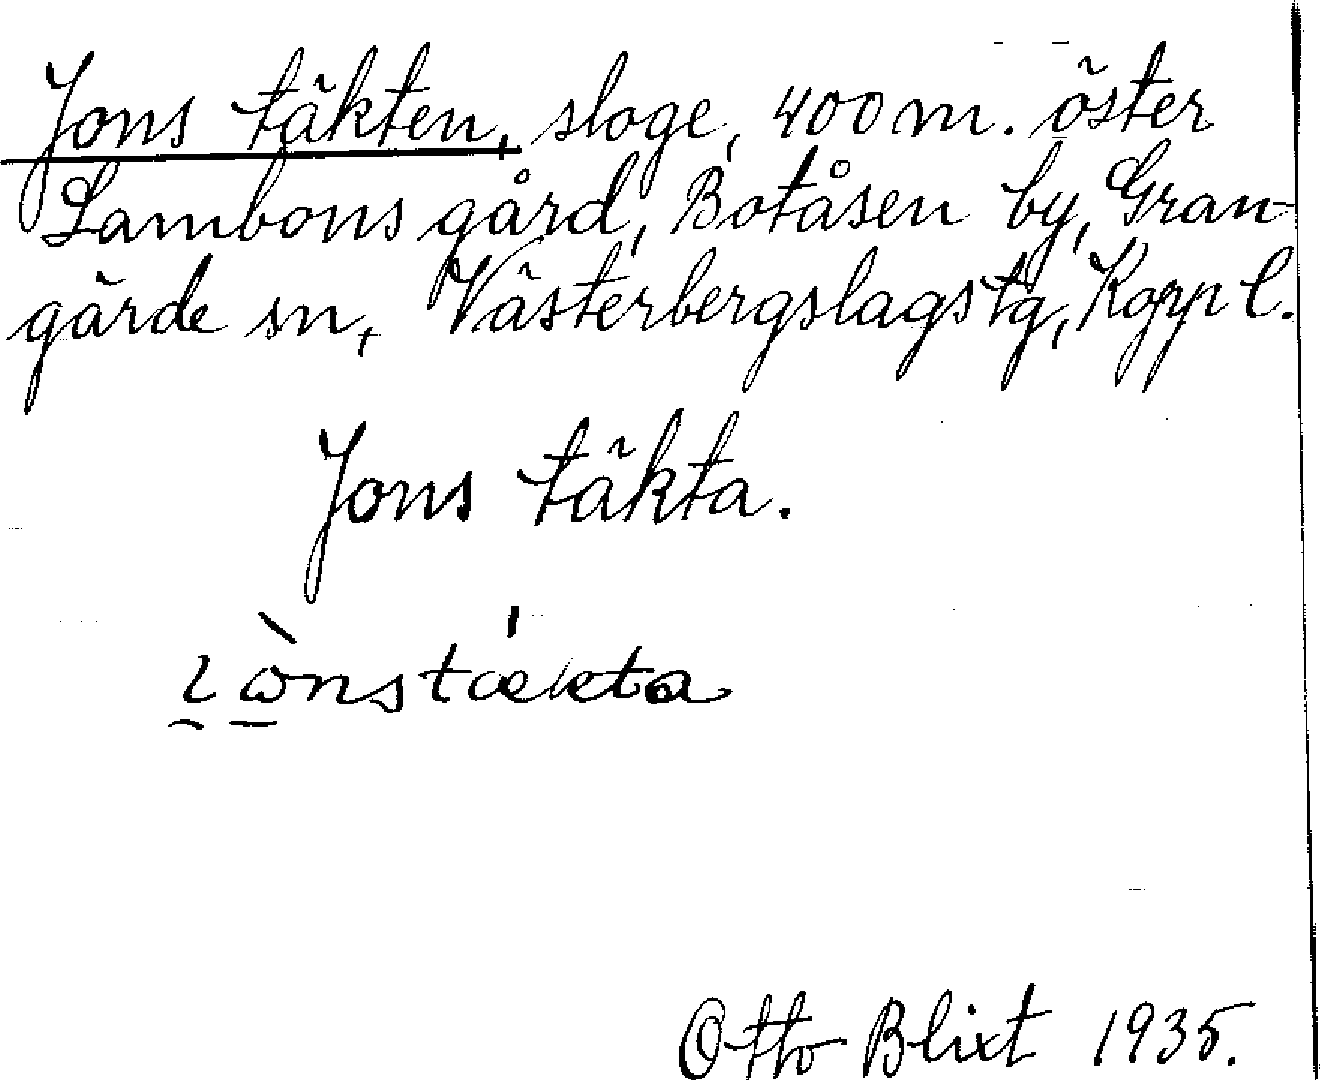 Jons täkten, sloge, 400 m. öster
Lambons gård, Botåsen by, Gran-
gärde sn, Västerbergslags tg, Kopp l.
Jons täkta.
Otto Blixt 1935.